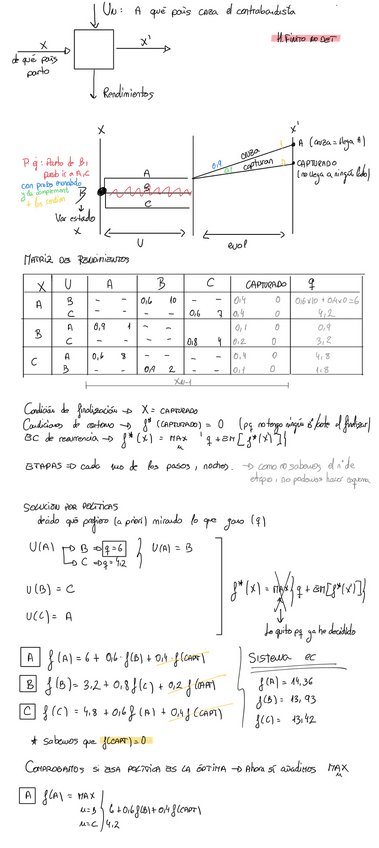 Un: A qué país cruza el contrabandista
H. FINITO NO DET
X
X'
de qué país parto
Rendimientos
X
X'
P.ej: Parto de B,
puedo ir a A, C
con probs
y la complement
+ los capturan
B
Var estado
X
A
B
C
0,9
0,1
cruza
capturan
A (cruza = llega A)
CAPTURADO
(no llega a ningún lado)
U
evol
MATRIZ DE RENDIMIENTOS
X U A B C CAPTURADO q
A B - - 0,6 10 - - 0,4 0 0,6x10 + 0,4x0 = 6
C - - - - 0,6 7 0,4 0 4,2
B A 0,9 1 - - - - 0,1 0 0,9
C - - - - 0,8 4 0,2 0 3,2
C A 0,6 8 - - - - 0,4 0 4,8
B - - 0,9 2 - - 0,1 0 1,8
Xn-1
Condición de finalización → X = CAPTURADO
Condiciones de contorno → f*(CAPTURADO) = 0 (pq no tengo ningún al finalizar)
EC de recurrencia → f*(X) = MAX { q + EM[f*(X')] }
u
ETAPAS ⇒ cada uno de los pasos, noches. → como no sabemos el nº de
etapas, no podemos hacer esquema
SOLUCIÓN POR POLÍTICAS
decido qué prefiero (a priori) mirando lo que gano (q)
U(A) → B ⇒ q = 6
→ C ⇒ q = 4,2
U(A) = B
U(B) = C
U(C) = A
f*(X) = MAX { q + EM[f*(X')] }
Lo quito pq ya he decidido
A f(A) = 6 + 0,6·f(B) + 0,4·f(CAPT)
B f(B) = 3,2 + 0,8 f(C) + 0,2 f(CAPT)
C f(C) = 4,8 + 0,6 f(A) + 0,4 f(CAPT)
Sistema ec
f(A) = 14,36
f(B) = 13,93
f(C) = 13,42
* Sabemos que f(CAPT) = 0
COMPROBAMOS SI ESA POLÍTICA ES LA ÓPTIMA → Ahora sí añadimos MAX
u
A f(A) = MAX
u=B { 6 + 0,6 f(B) + 0,4 f(CAPT)
u=C { 4,2